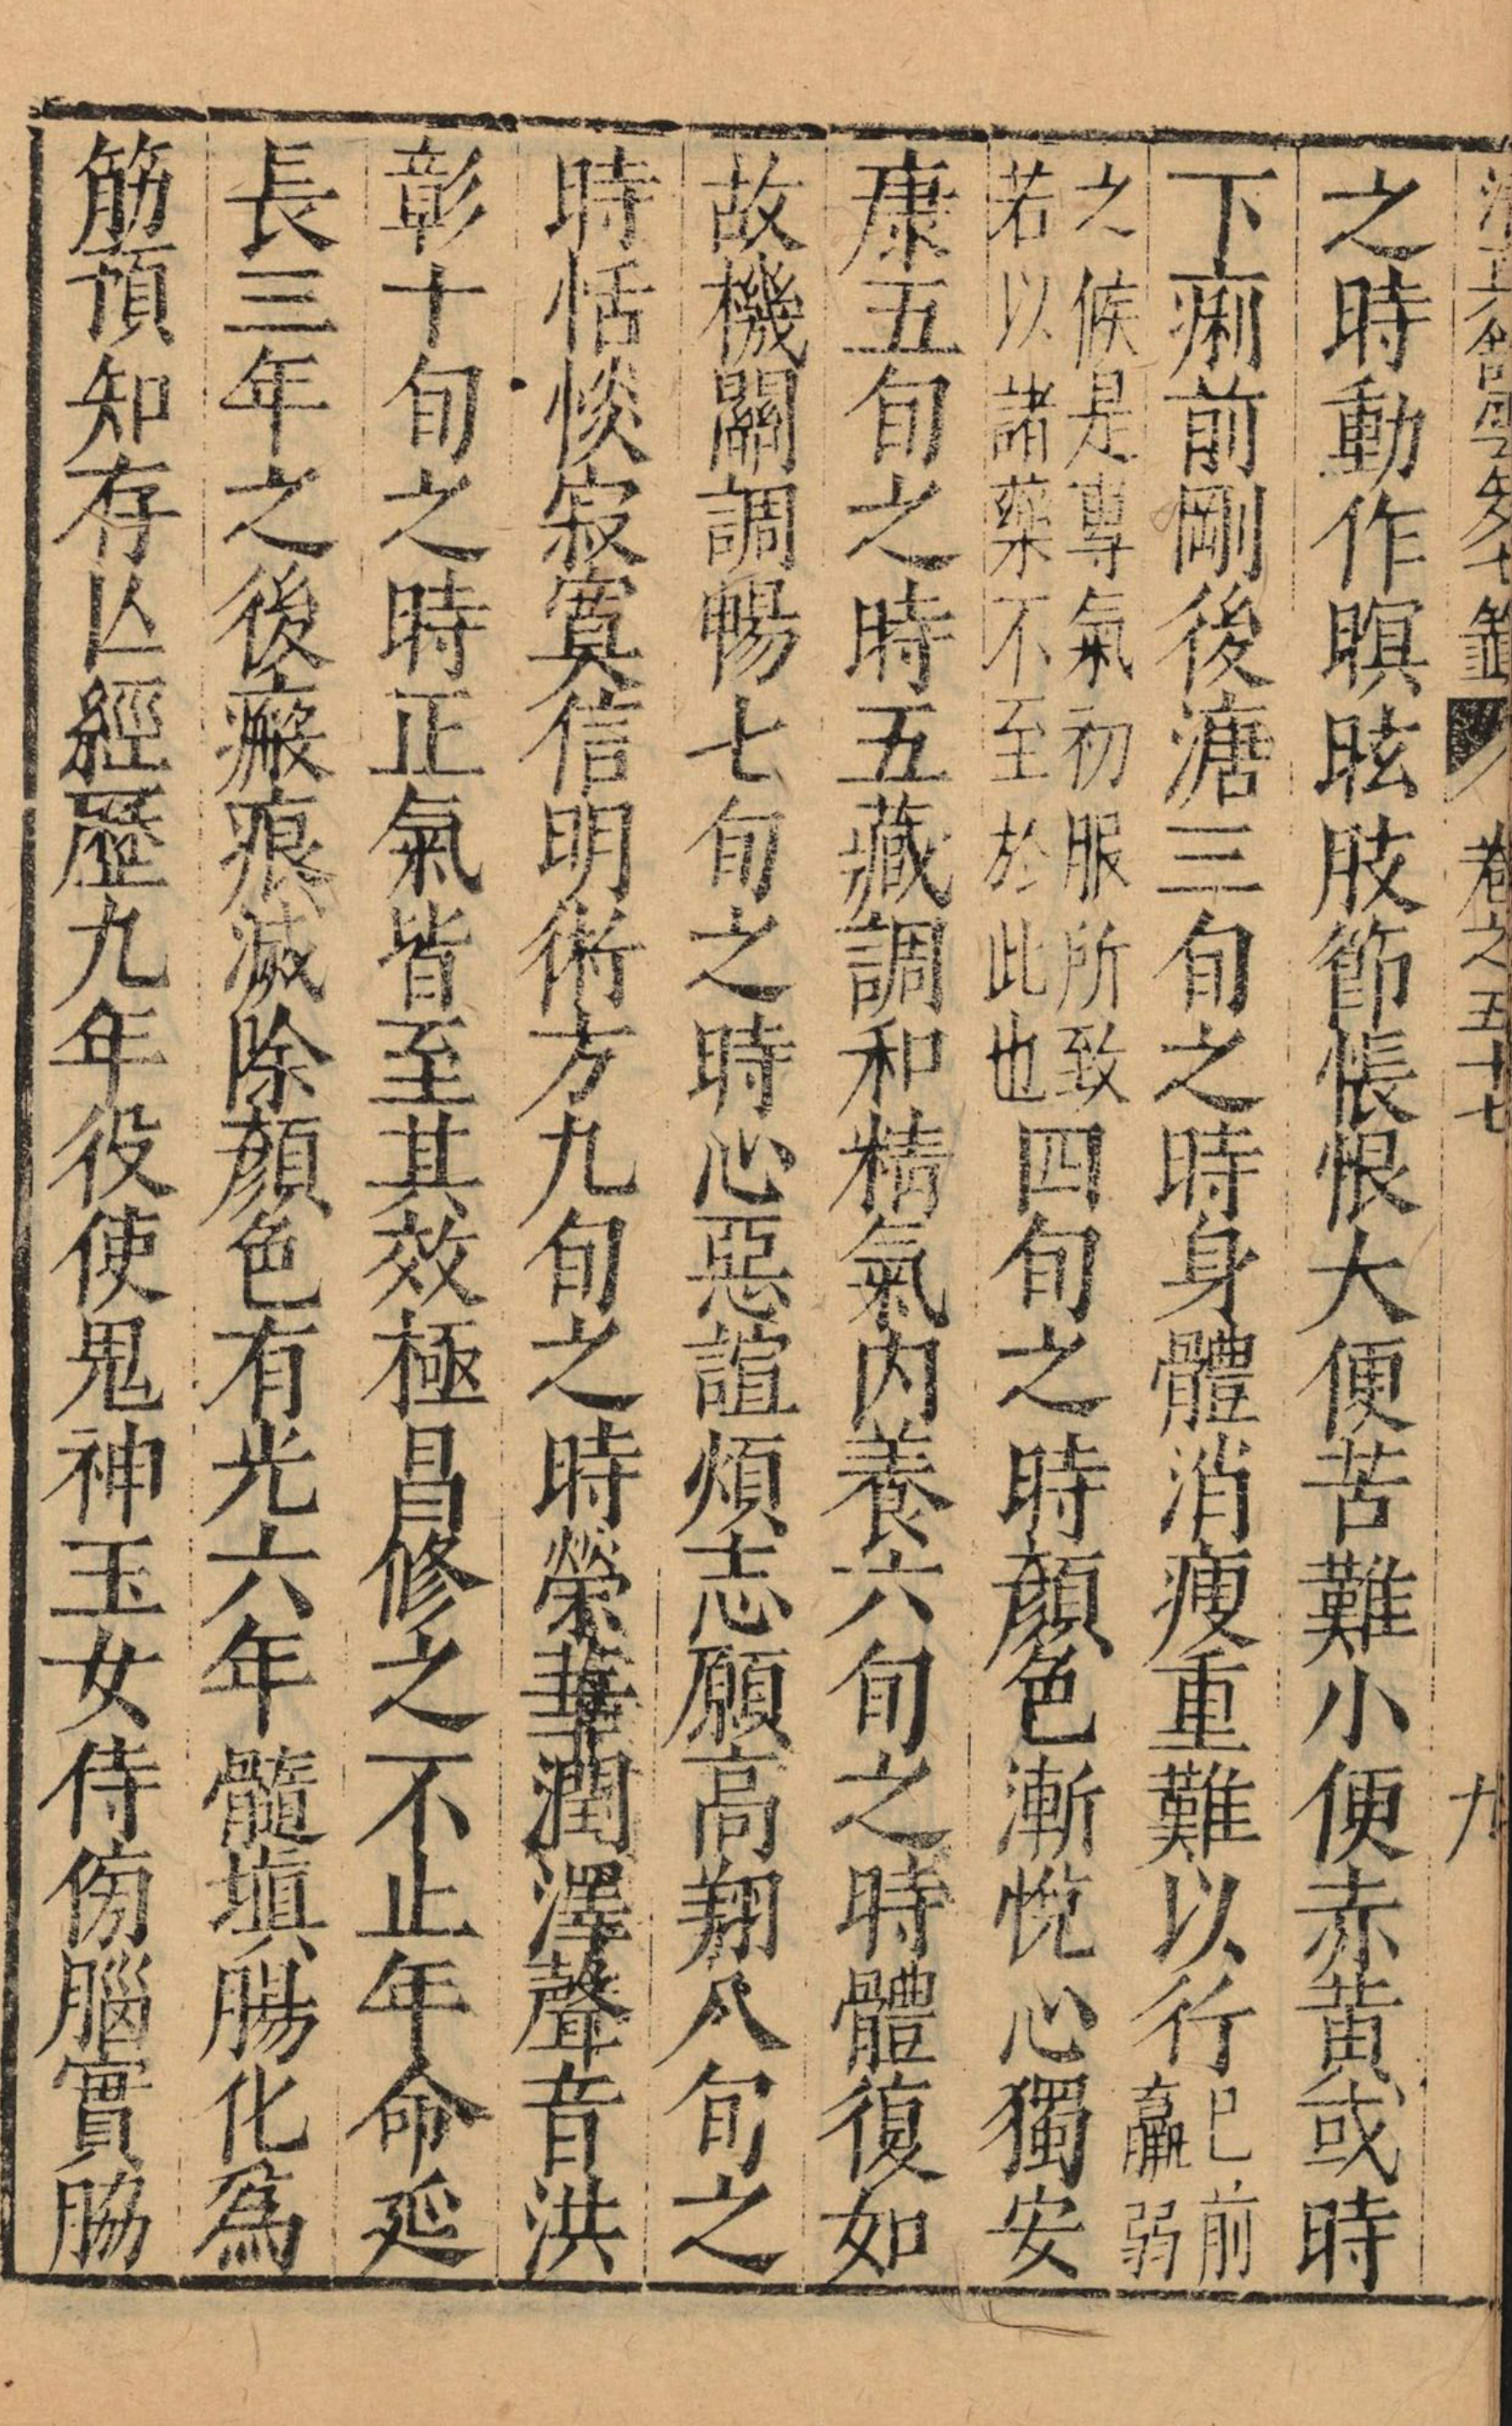 卷之五十七
九
之時動作瞑眩肢節悵恨大便苦難小便赤黃或時
下痢前剛後溏三旬之時身體消瘦重難以行已前羸弱
之候是專氣初服所致若以諸藥不至於此也四旬之時顏色漸悅心獨安
康五旬之時五藏調和精氣內養六旬之時體復如
故機關調暢七旬之時心惡諠煩志願高翔八旬之
時恬惔寂寞信明術方九旬之時榮華潤澤聲音洪
彰十旬之時正氣皆至其效極昌修之不止年命延
長三年之後瘢痕滅除顏色有光六年髓塡腸化為
筋預知存亾經歷九年役使鬼神玉女侍傍腦實脇